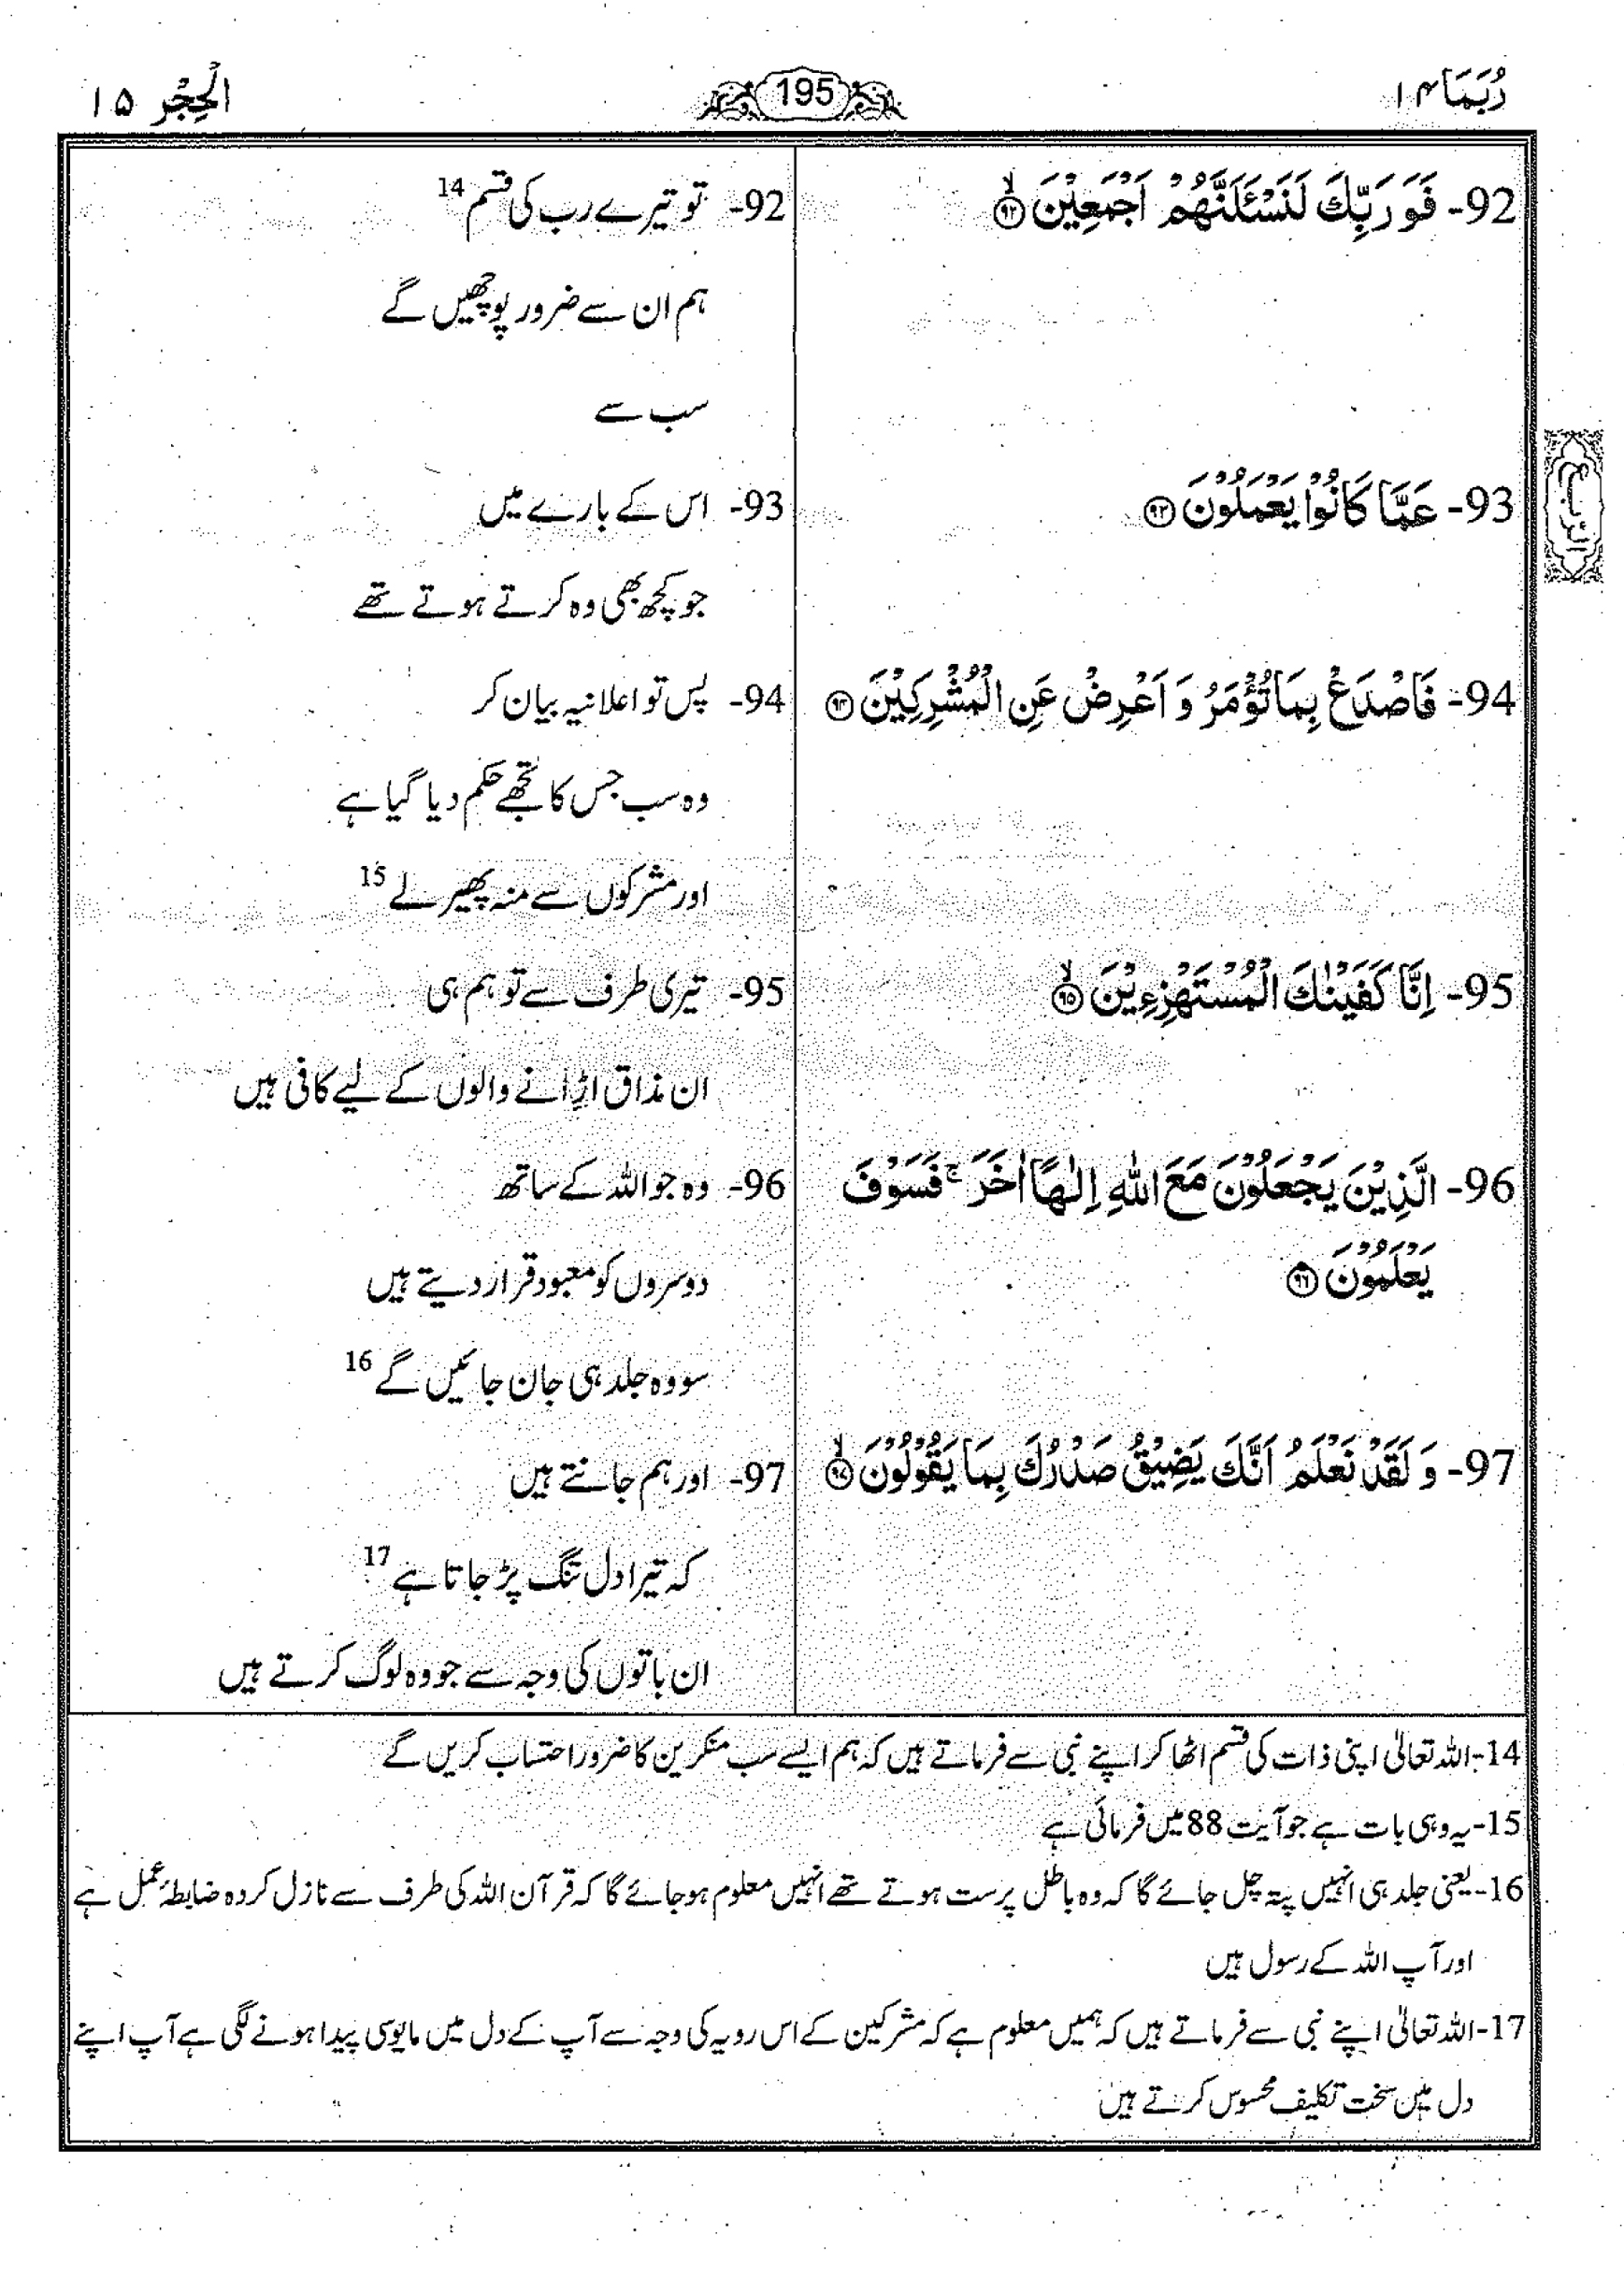 رُبَمَا ۱۴
195
الْحِجْر ۱۵
92- فَوَرَبِّكَ لَنَسْـَٔلَنَّهُمْ اَجْمَعِيْنَ ۙ۹۲
93- عَمَّا كَانُوْا يَعْمَلُوْنَ ۹۳
94- فَاصْدَعْ بِمَا تُؤْمَرُ وَ اَعْرِضْ عَنِ الْمُشْرِكِيْنَ ۹۴
95- اِنَّا كَفَيْنٰكَ الْمُسْتَهْزِءِيْنَ ۙ۹۵
96- الَّذِيْنَ يَجْعَلُوْنَ مَعَ اللّٰهِ اِلٰهًا اٰخَرَ ۚ فَسَوْفَ
يَعْلَمُوْنَ ۹۶
97- وَ لَقَدْ نَعْلَمُ اَنَّكَ يَضِيْقُ صَدْرُكَ بِمَا يَقُوْلُوْنَ ۙ۹۷
92- تو تیرے رب کی قسم 14
ہم ان سے ضرور پوچھیں گے
سب سے
93- اس کے بارے میں
جو کچھ بھی وہ کرتے ہوتے تھے
94- پس تو اعلانیہ بیان کر
وہ سب جس کا تجھے حکم دیا گیا ہے
اور مشرکوں سے منہ پھیر لے 15
95- تیری طرف سے تو ہم ہی
ان مذاق اڑانے والوں کے لیے کافی ہیں
96- وہ جو اللہ کے ساتھ
دوسروں کو معبود قرار دیتے ہیں
سو وہ جلد ہی جان جائیں گے 16
97- اور ہم جانتے ہیں
کہ تیرا دل تنگ پڑ جاتا ہے 17
ان باتوں کی وجہ سے جو وہ لوگ کرتے ہیں
الربع
14- اللہ تعالیٰ اپنی ذات کی قسم اٹھا کر اپنے نبی سے فرماتے ہیں کہ ہم ایسے سب منکرین کا ضرور احتساب کریں گے
15- یہ وہی بات ہے جو آیت 88 میں فرمائی ہے
16- یعنی جلد ہی انہیں پتہ چل جائے گا کہ وہ باطل پرست ہوتے تھے انہیں معلوم ہو جائے گا کہ قرآن اللہ کی طرف سے نازل کردہ ضابطۂ عمل ہے
اور آپ اللہ کے رسول ہیں
17- اللہ تعالیٰ اپنے نبی سے فرماتے ہیں کہ ہمیں معلوم ہے کہ مشرکین کے اس رویہ کی وجہ سے آپ کے دل میں مایوسی پیدا ہونے لگی ہے آپ اپنے
دل میں سخت تکلیف محسوس کرتے ہیں